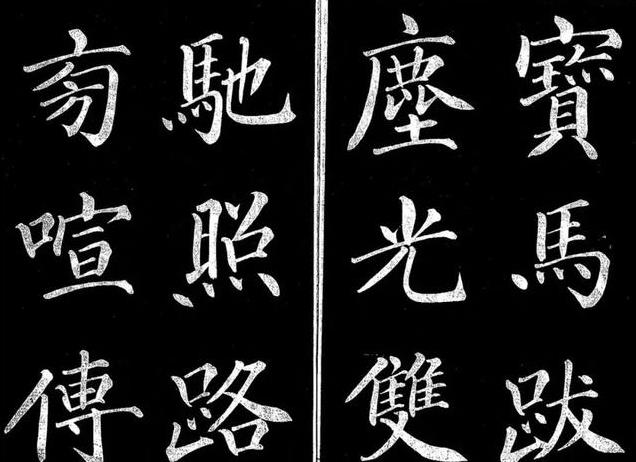 寶馬跋
塵光雙
馳照路
旁喧傳